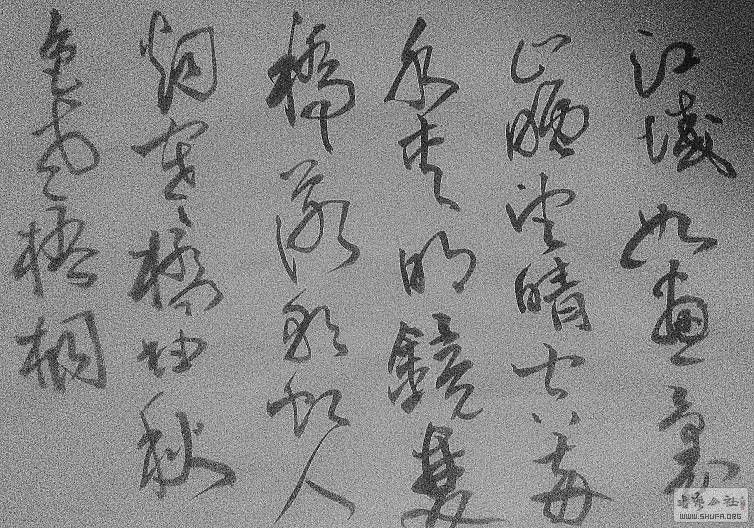 江城如畫裏
山晚望晴空兩
水夾明鏡雙
橋落彩虹人
煙寒橘柚秋
色老梧桐
WWW.SHUFA.ORG